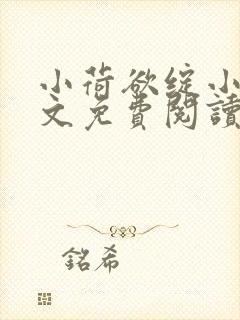 小荷欲綻小
文免費閱讀
銘希